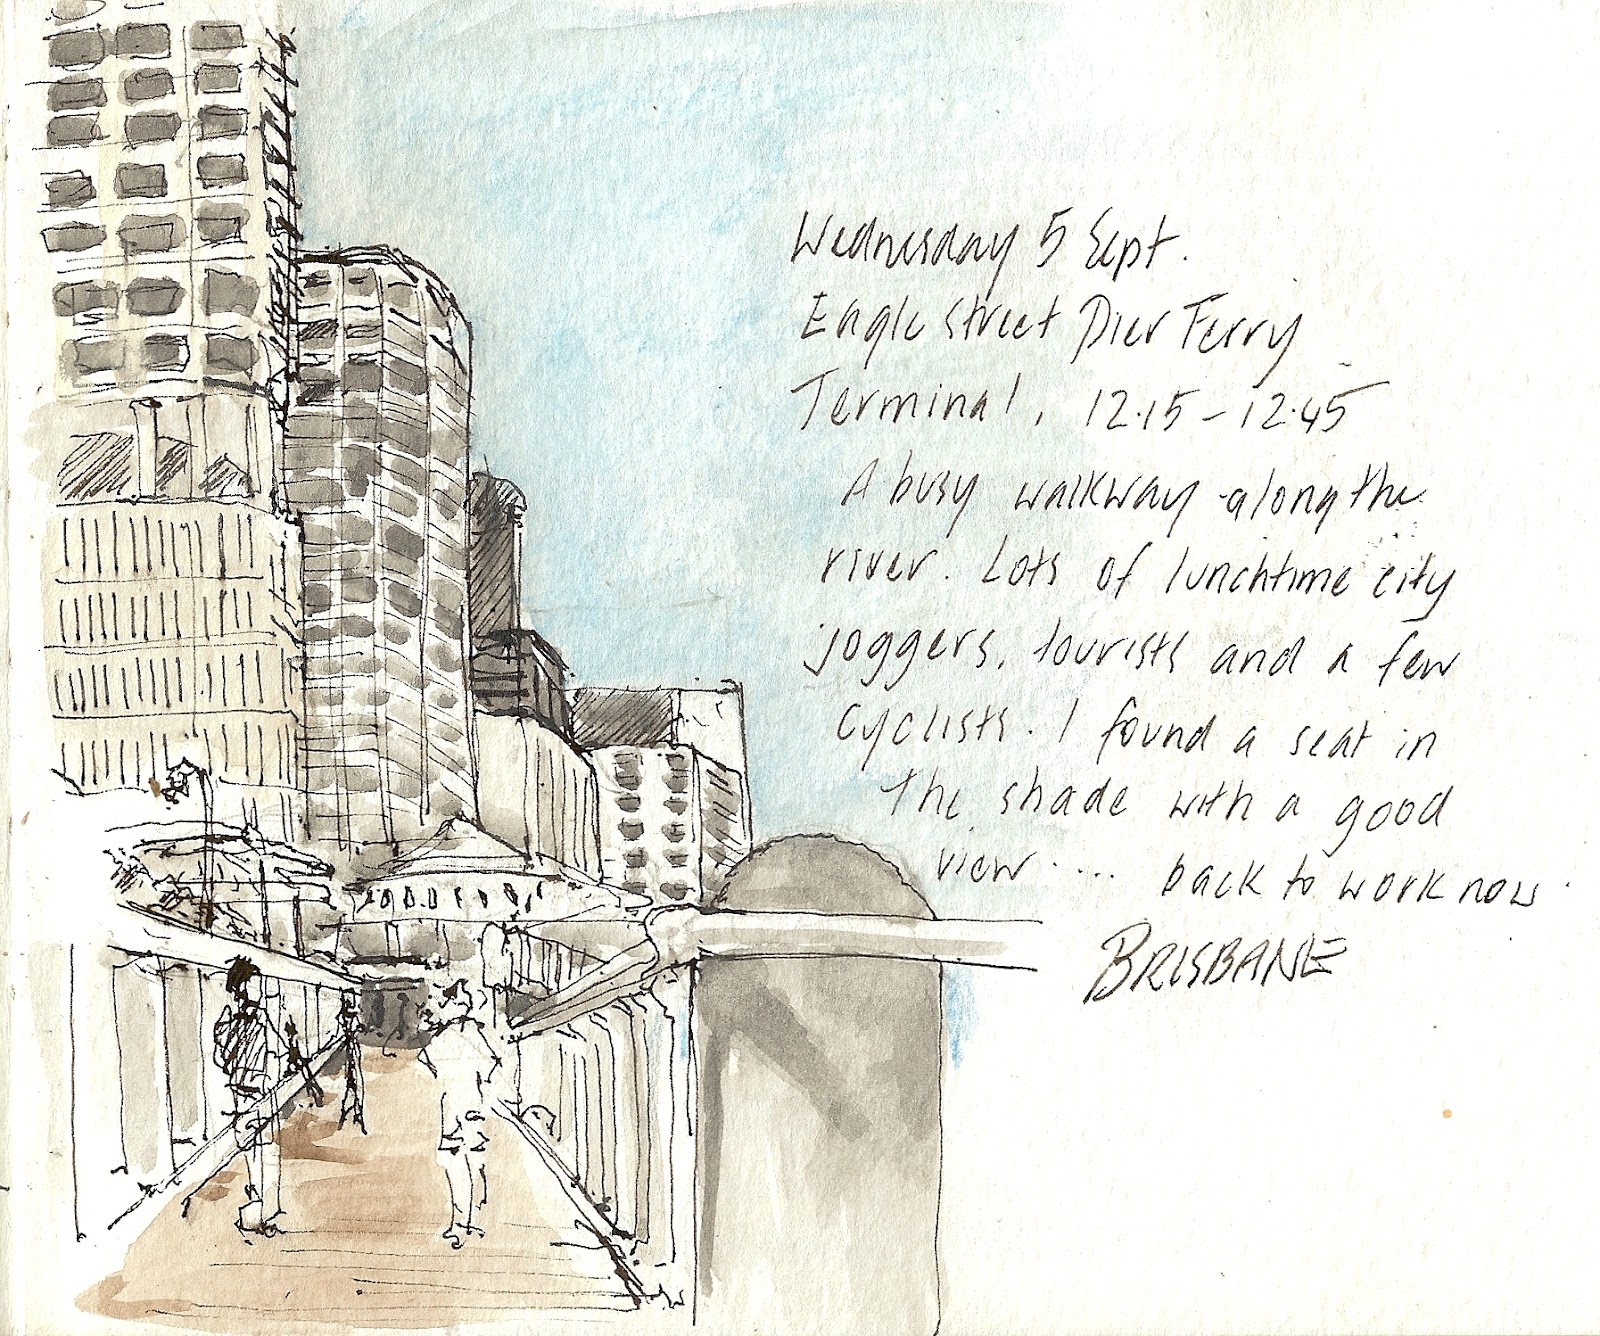 Wednesday 5 Sept.
Eagle Street Pier Ferry
Terminal, 12.15 - 12.45
A busy walkway along the
river. Lots of lunchtime city
joggers, tourists and a few
cyclists. I found a seat in
the shade with a good
view .... back to work now.
BRISBANE